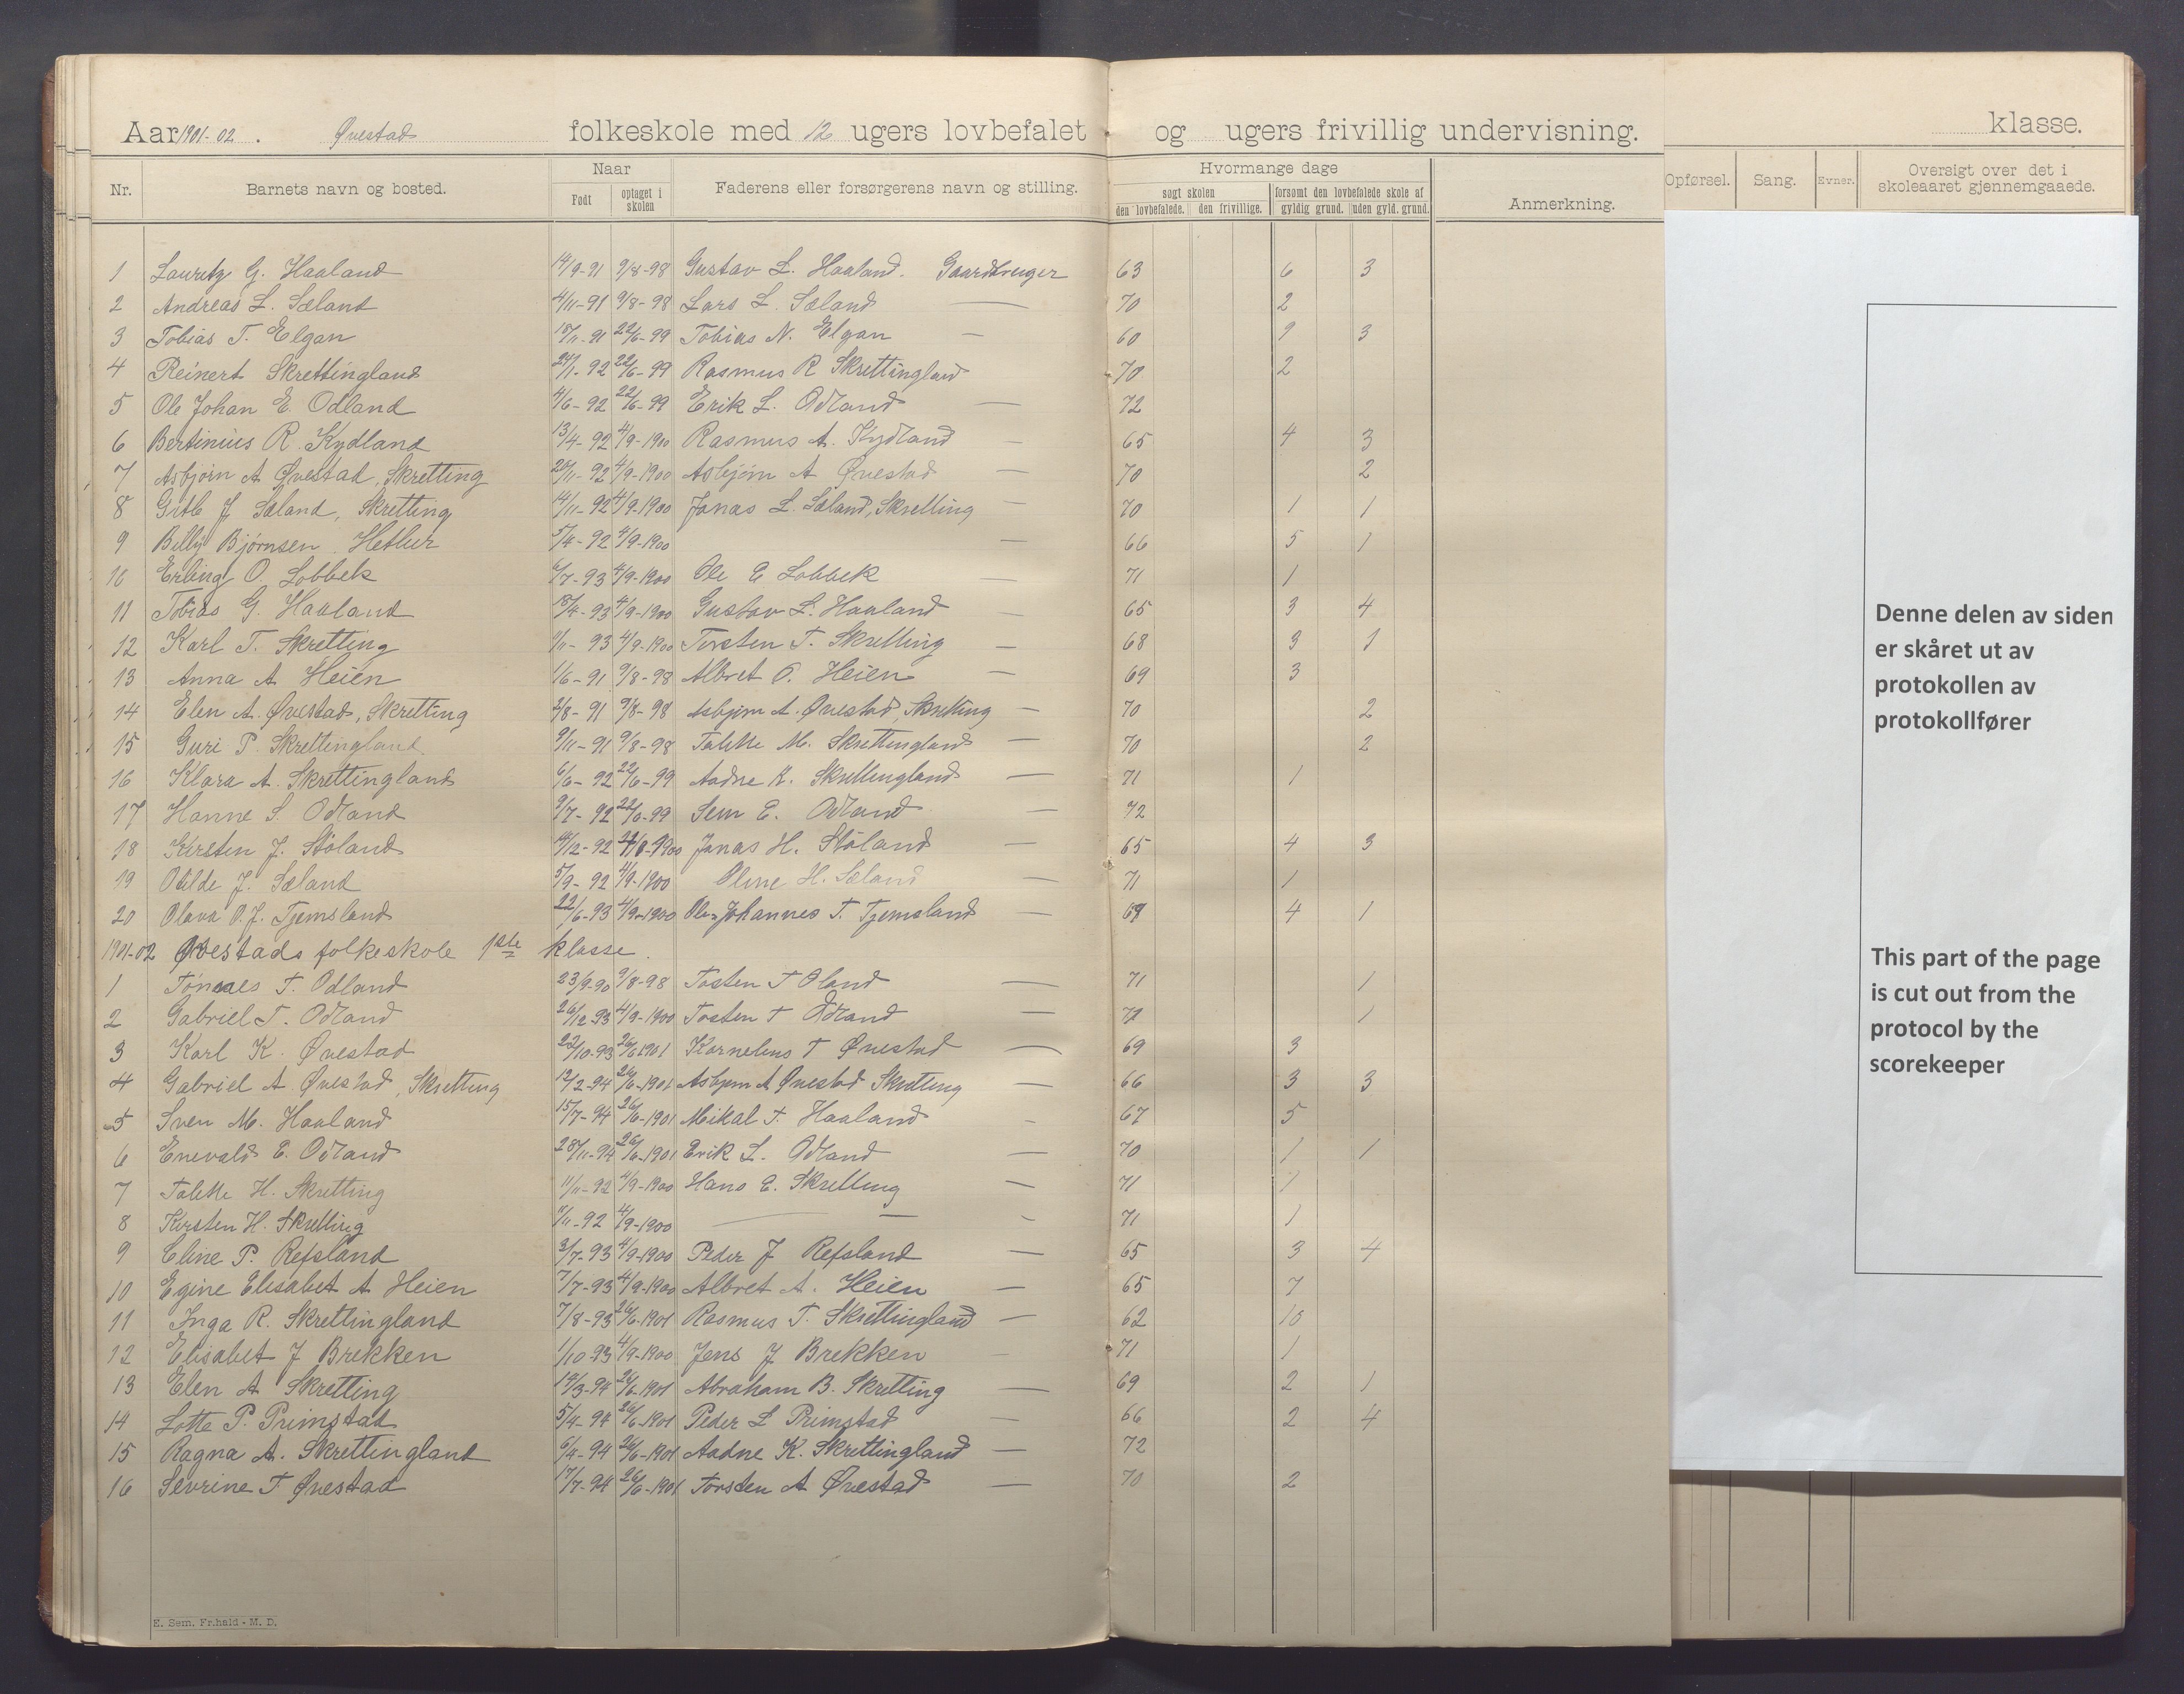 Aar 1901-02. Øvestad folkeskole med 12 ugers lovbefalet og ugers frivillig undervisning. klasse.
Nr. Barnets navn og bosted. Naar Født optaget i skolen Faderens eller forsørgerens navn og stilling. Hvormange dage søgt skolen den lovbefalede. den frivillige. forsømt den lovbefalede skole af gyldig grund. uden gyld. grund. Anmerkning. Opførsel. Sang. Evner. Oversigt over det i skoleaaret gjennemgaaede.
1 Lauritz G. Haaland 14/9-91 9/8-98 Gustav L. Haaland. Gaardbruger 63 6 3
2 Andreas L. Sæland 4/11-91 9/8-98 Lars L. Sæland — 70 2
3 Tobias T. Elgan 18/11-91 22/6-99 Tobias N. Elgan — 60 9 3
4 Reinert Skrettingland 24/1-92 22/6-99 Rasmus R Skrettingland 70 2
5 Ole Johan E. Odland 4/6-92 22/6-99 Erik L. Odland — 72
6 Bertinius R. Kydland 13/4-92 4/9-1900 Rasmus A. Kydland — 65 4 3
7 Asbjørn A Øvestad, Skretting 28/11-92 4/9-1900 Asbjørn A Øvestad — 70 2
8 J Sæland, Skretting 4/11-92 4/9-1900 Jonas L. Sæland, Skretting — 70 1 1
9 Billy Bjørnsen Hetlur 5/4-92 4/9-1900 — 66 5 1
10 Erling O. Lobbek 6/7-93 4/9-1900 Ole E Lobbek — 71 1
11 Tobias G. Haaland 18/4-93 4/9-1900 Gustav L. Haaland — 65 3 4
12 Karl T. Skretting 9/11-93 4/9-1900 Torsten T. Skretting — 68 3 1
13 Anna A Heien 1/6-91 9/8-98 Albret O. Heien — 69 3
14 Elen A. Øvestad, Skretting 2/8-91 9/8-98 Asbjørn A. Øvestad, Skretting — 70 2
15 Guri P. Skrettingland 9/11-91 9/8-98 Talette M. Skrettingland — 70 2
16 Klara A. Skrettingland 6/6-92 22/6-99 Aadne K. Skrettingland — 71 1
17 Hanne S. Odland 9/7-92 22/6-99 Sem E. Odland — 72
18 Kirsten J. Støland /12-92 Jonas H. Støland — 65 4 3
19 Otilde J. Sæland 5/9-92 4/9-1900 Oline H. Sæland — 71 1
20 Olava O. J. Tjemsland 22/6-93 4/9-1900 Ole Johannes T. Tjemsland — 67 4 1
1901-02 Øvestads folkeskole 1ste klasse.
1 Tønnes T. Odland 23/9-90 9/8-98 Tosten T Oland — 71 1
2 Gabriel T. Odland 26/12-93 4/9-1900 Tosten T Odland — 71 1
3 Karl K. Øvestad 22/10-93 26/6 1901 Kornelius T Øvestad — 69 3
4 Gabriel A Øvestad, Skretting 12/2-94 26/6-1901 Asbjørn A Øvestad Skretting — 66 3 3
5 Sven M. Haaland 15/7-94 26/6-1901 Mikal T. Haaland - 67 5
6 Enevald E. Odland 28/11-94 26/6-1901 Erik L. Odland — 70 1 1
7 Talette H. Skretting 11/11-92 4/9-1900 Hans E. Skretting — 71 1
8 Kirsten H. Skretting 11/11-92 4/9-1900 — — 71 1
9 Eline P. Refsland 3/7-93 4/9-1900 Peder J Refsland — 65 3 4
10 Egine Elisabet A Heien 7/7-93 4/9-1900 Albret A. Heien — 65 7
11 Inga R. Skrettingland 7/8-93 26/6-1901 Rasmus T. Skrettingland — 62 10
12 Elisabet J Brekken 1/10-93 4/9-1900 Jens J Brekken — 71 1
13 Elen A Skretting 14/3-94 26/6-1901 Abraham B. Skretting — 69 2 1
14 Lotta P. Primstad 5/4-94 26/6-1901 Peder L Primstad — 66 2 4
15 Ragna A. Skrettingland 6/4-94 26/6-1901 Aadne K. Skrettingland — 72
16 Sevrine T Øvestad 17/7-94 26/6-1901 Torsten A Øvestad — 70 2
E. Sem. Fr.hald - M. D.
Denne delen av siden
er skåret ut av
protokollen av
protokollfører
This part of the page
is cut out from the
protocol by the
scorekeeper